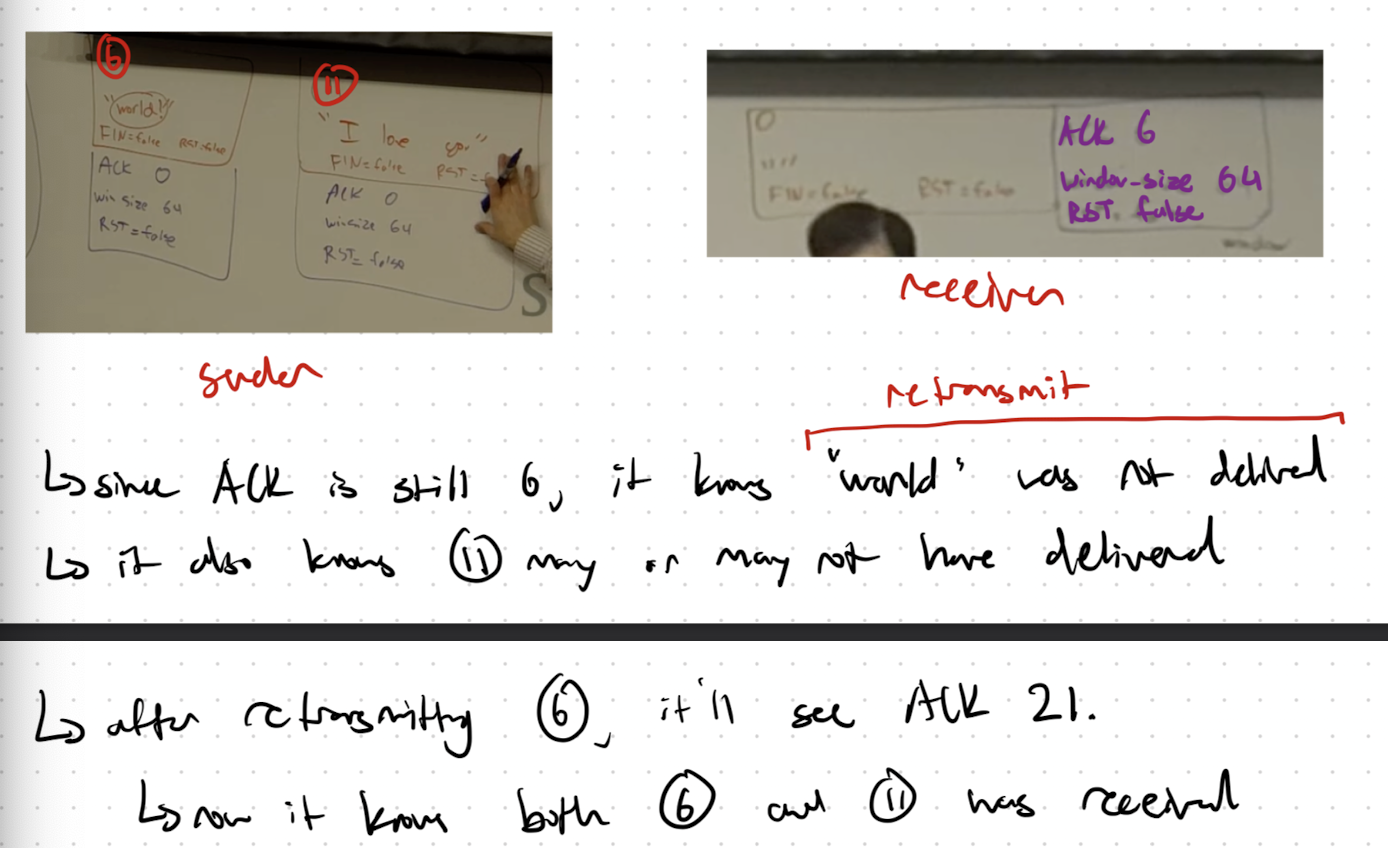 6
"world!"
FIN=false RST=false
ACK 0
win size 64
RST=false
11
"I love you"
FIN=false RST=f
ACK 0
winsize 64
RST= false
S
sender
0
" "
FIN=false RST=false
ACK 6
Window-size 64
RST false
window
receiver
retransmit
↳ since ACK is still 6, it knows "world" was not delivered
↳ it also knows 11 may or may not have delivered
↳ after retransmitting 6, it'll see ACK 21.
↳ now it knows both 6 and 11 was received